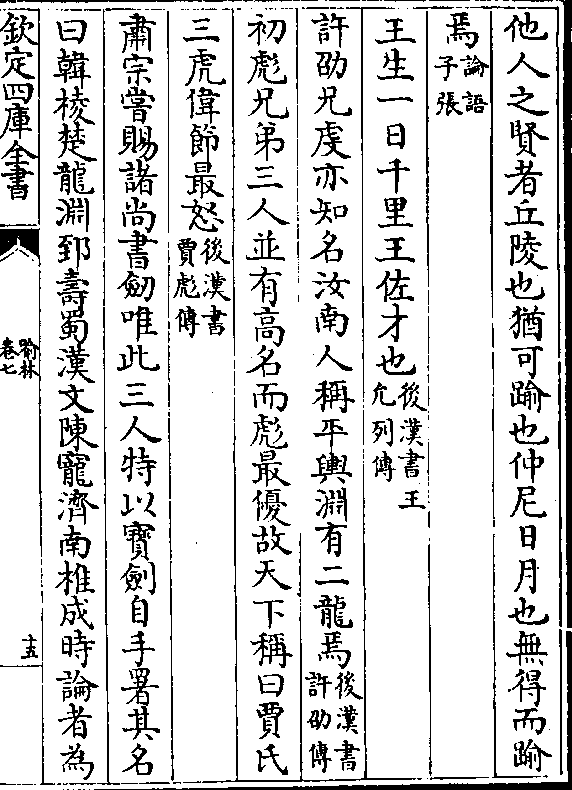 他人之賢者丘陵也猶可踰也仲尼日月也無得而踰
焉論語子張
王生一日千里王佐才也後漢書王允列傳
許劭兄虔亦知名汝南人稱平輿淵有二龍焉後漢書許劭傳
初彪兄弟三人並有高名而彪最優故天下稱曰賈氏
三虎偉節最怒後漢書賈彪傳
肅宗嘗賜諸尚書劒唯此三人特以寶劍自手署其名
曰韓棱楚龍淵郅壽蜀漢文陳寵濟南椎成時論者為
欽定四庫全書
喻林
卷七
十五